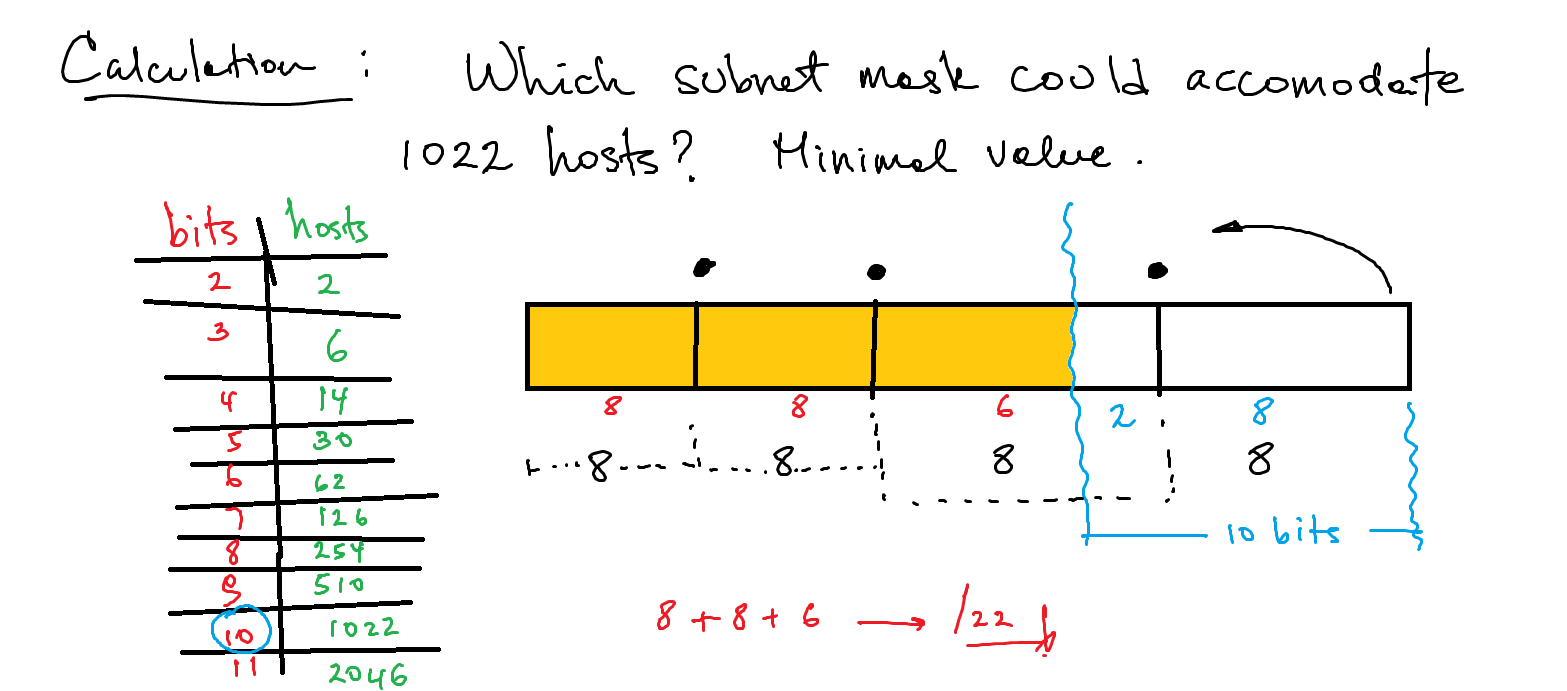 Calculation : Which subnet mask could accomodate
1022 hosts? Minimal value.
bits hosts
2 2
3 6
4 14
5 30
6 62
7 126
8 254
9 510
10 1022
11 2046
8 8 6 2 8
8 8 8 8
10 bits
8 + 8 + 6 → /22